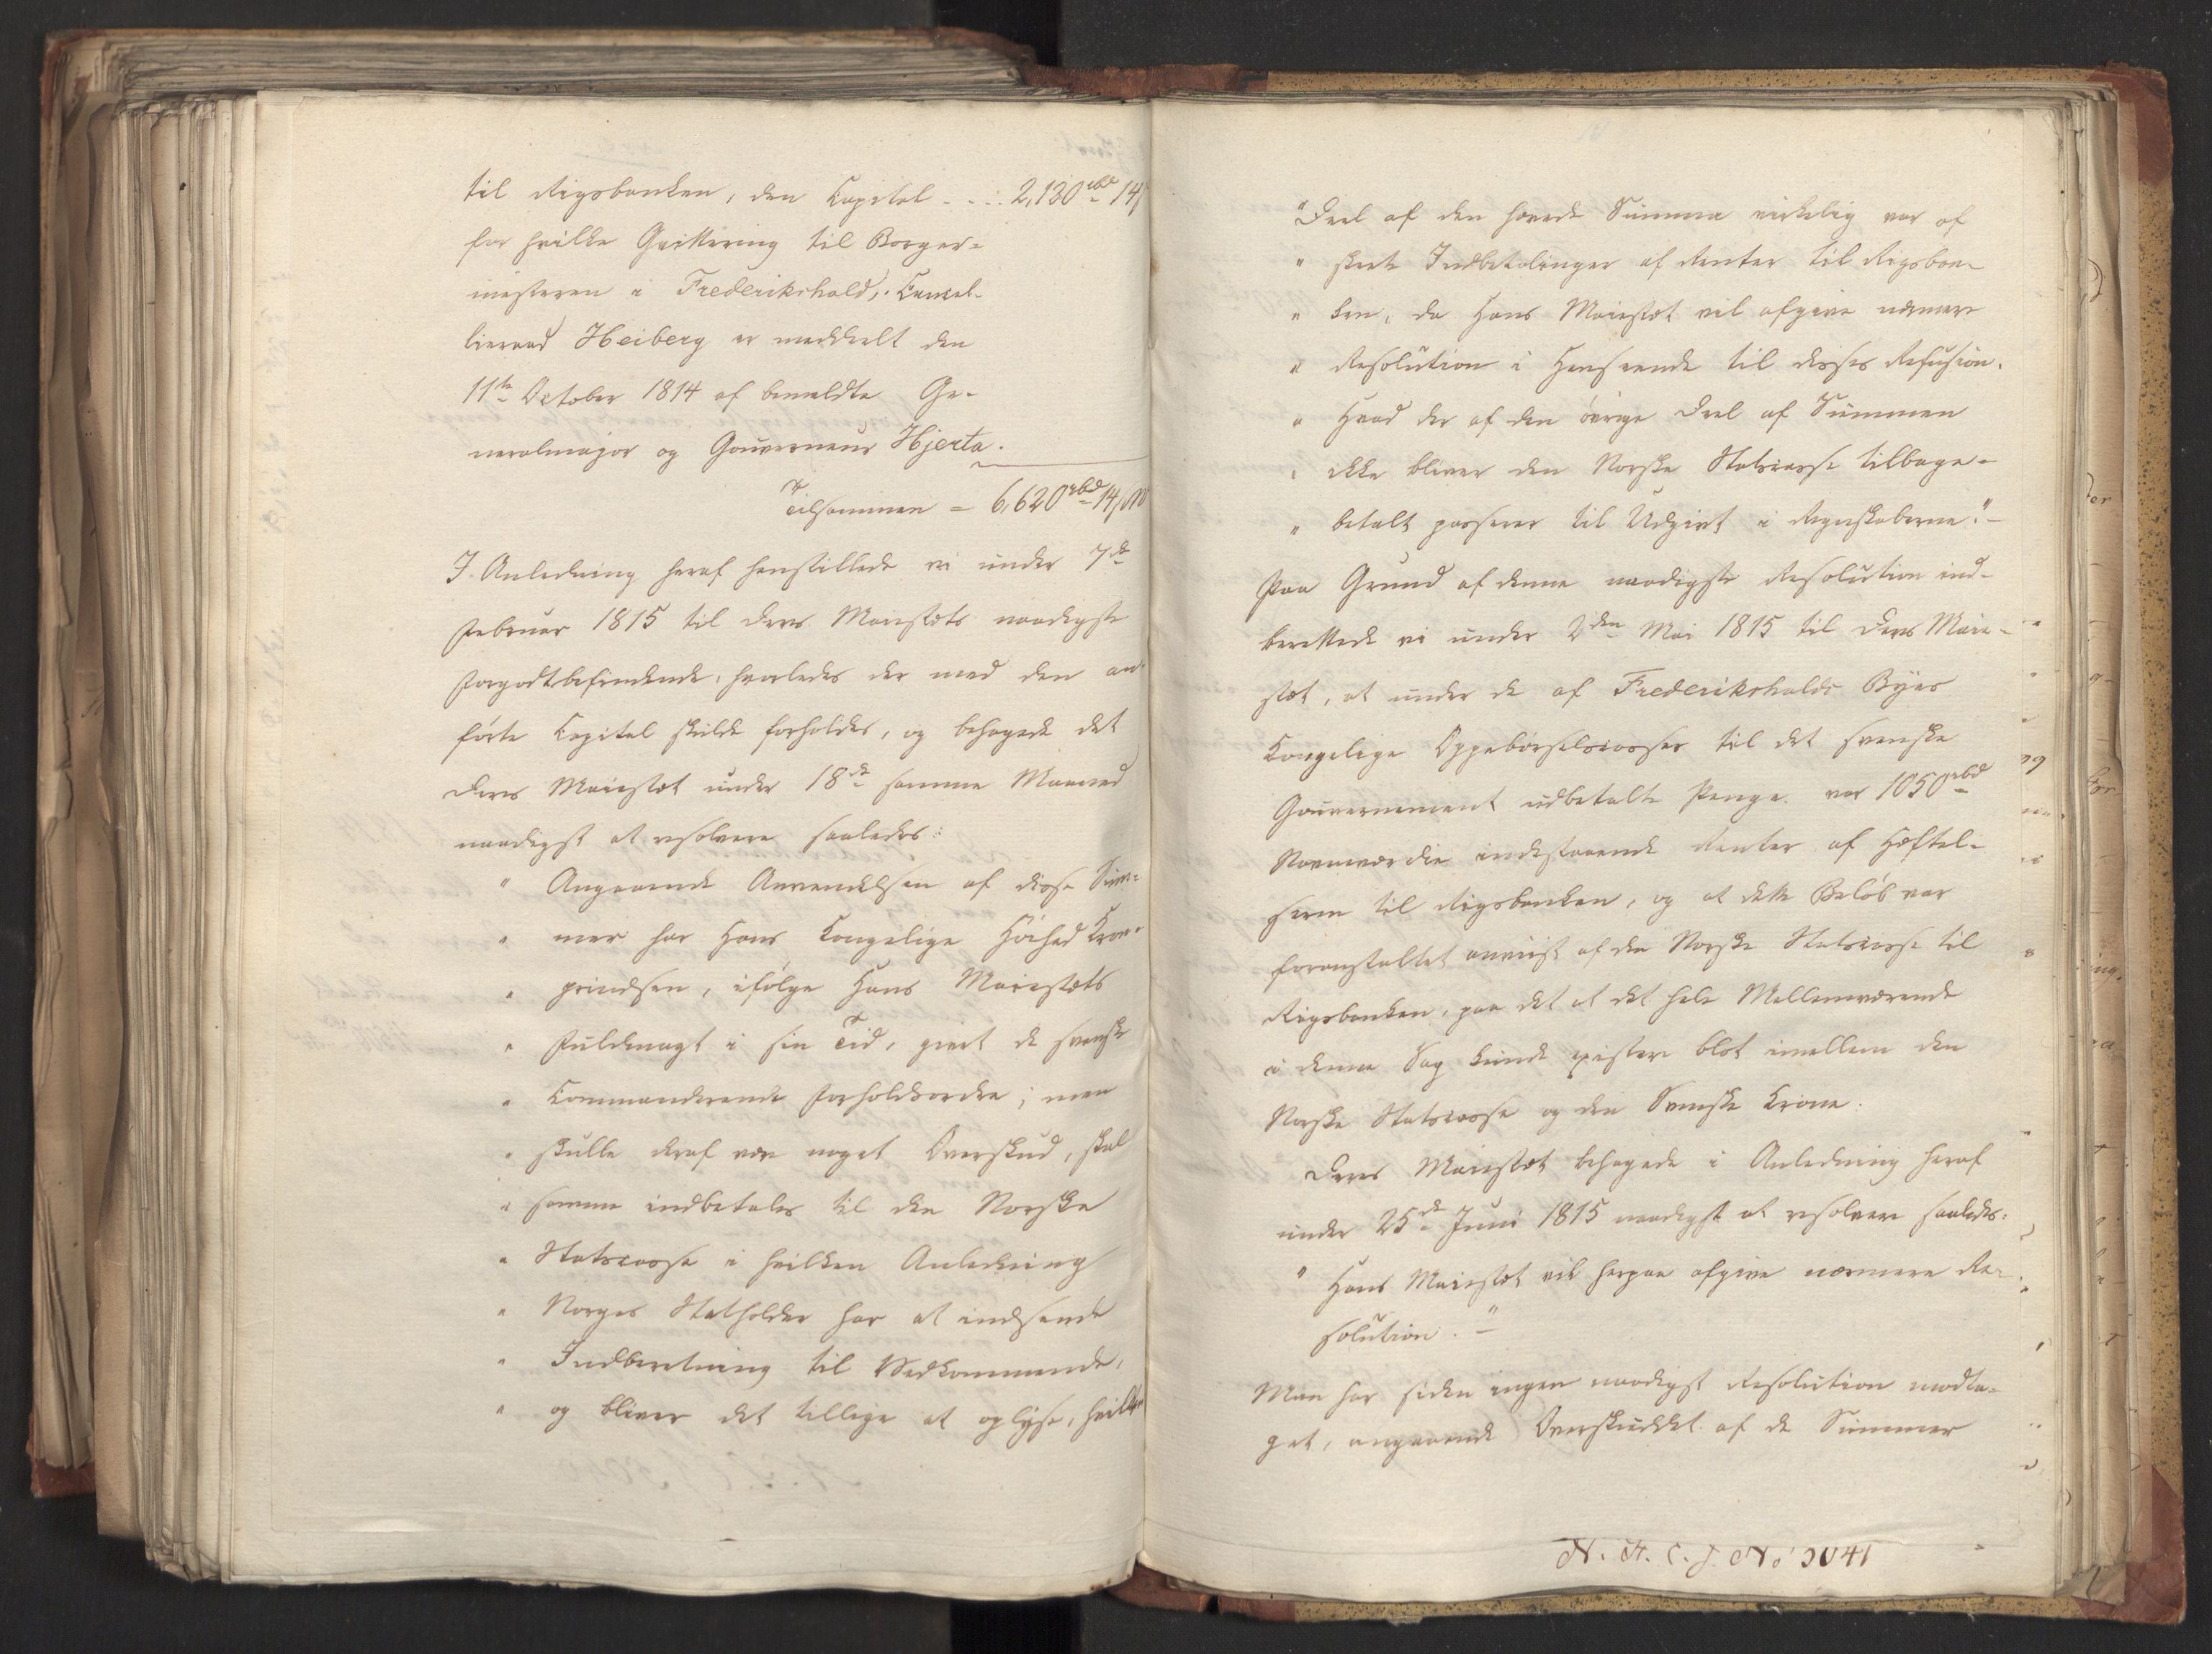 til Rigsbanken, den Capital - - - 2,130 rbd 14
for hvilke Qvittering til Borger-
mesteren i Frederikshald, Cancel-
lieraad Heiberg er meddeelt den
11te October 1814 af bemeldte Ge-
neralmajor og Gouverneur Hjerta.
Tilsammen = 6,620 rbd 14
I Anledning heraf henstillede vi under 7de
Februar 1815 til Deres Maiestæts naadigste
Forgodtbefindende, hvorledes der med den an-
førte Capital skulde forholdes, og behagede det
Deres Maiestæt under 18de samme Maaned
naadigst at resolvere saaledes:
" Angaaende Anvendelsen af disse Sum-
" mer har Hans Kongelige Høihed Kron-
" prindsen, ifølge Hans Maiestæts
" Fuldmagt i sin Tid, givet de svenske
" Commanderende Forholdsordre; men
" skulle deraf være noget Overskud, skal
" samme indbetales til den Norske
" Statscasse i hvilken Anledning
" Norges Statholder har at indsende
" Indberetning til Vedkommende,
" og bliver det tillige at oplyse, hvilken
" Deel af den hævede Summa virkelig var af
" skeete Indbetalinger af Renter til Rigsban-
" ken, da Hans Maiestæt vil afgive nærmere
" Resolution i Henseende til disses Refusion.
" Hvad der af den øvrige Deel af Summen
" ikke bliver den Norske Statscasse tilbage-
" betalt passerer til Udgivt i Regnskaberne." -
Paa Grund af denne naadigste Resolution ind-
berettede vi under 2den Mai 1815 til Deres Maie-
stæt, at under de af Frederikshalds Byes
Kongelige Oppebørselscasser til det svenske
Gouvernement udbetalte Penge var 1050 rbd
Navneværdie indestaaende Renter af Hæftel-
serne til Rigsbanken, og at dette Beløb var
foranstaltet anviist af den Norske Statscasse til
Rigsbanken, paa det at det hele Mellemværende
i denne Sag kunde existere blot imellem den
Norske Statscasse og den Svenske Krone.
Deres Maiestæt behagede i Anledning heraf
under 25de Juni 1815 naadigst at resolvere saaledes:
" Hans Maiestæt vil herpaa afgive nærmere Re-
solution." -
Man har siden ingen naadigst Resolution modta-
get, angaaende Overskuddet af de Summer
N. A. C. J. No 3041